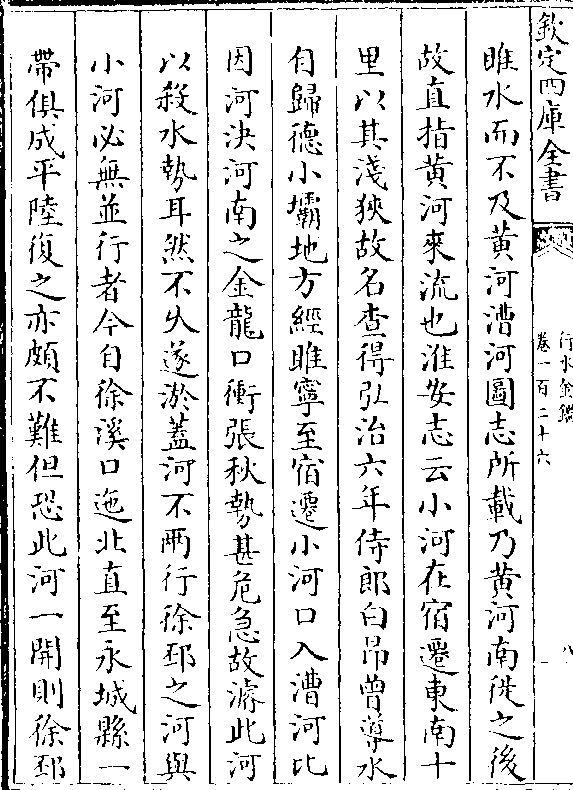 欽定四庫全書
行水金鑑
卷一百二十六
八
睢水而不及黄河漕河圖志所載乃黄河南徙之後
故直指黄河來流也淮安志云小河在宿遷東南十
里以其淺狹故名查得弘治六年侍郎白昂曾導水
自歸德小壩地方經睢寧至宿遷小河口入漕河比
因河決河南之金龍口衝張秋勢甚危急故濬此河
以殺水勢耳然不乆遂淤蓋河不兩行徐邳之河與
小河必無並行者今自徐溪口迤北直至永城縣一
帶俱成平陸復之亦頗不難但恐此河一開則徐邳